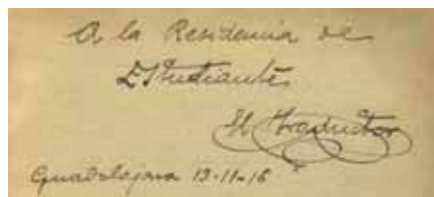 A la Residencia de
Estudiantes
El Traductor
Guadalajara 13-11-16